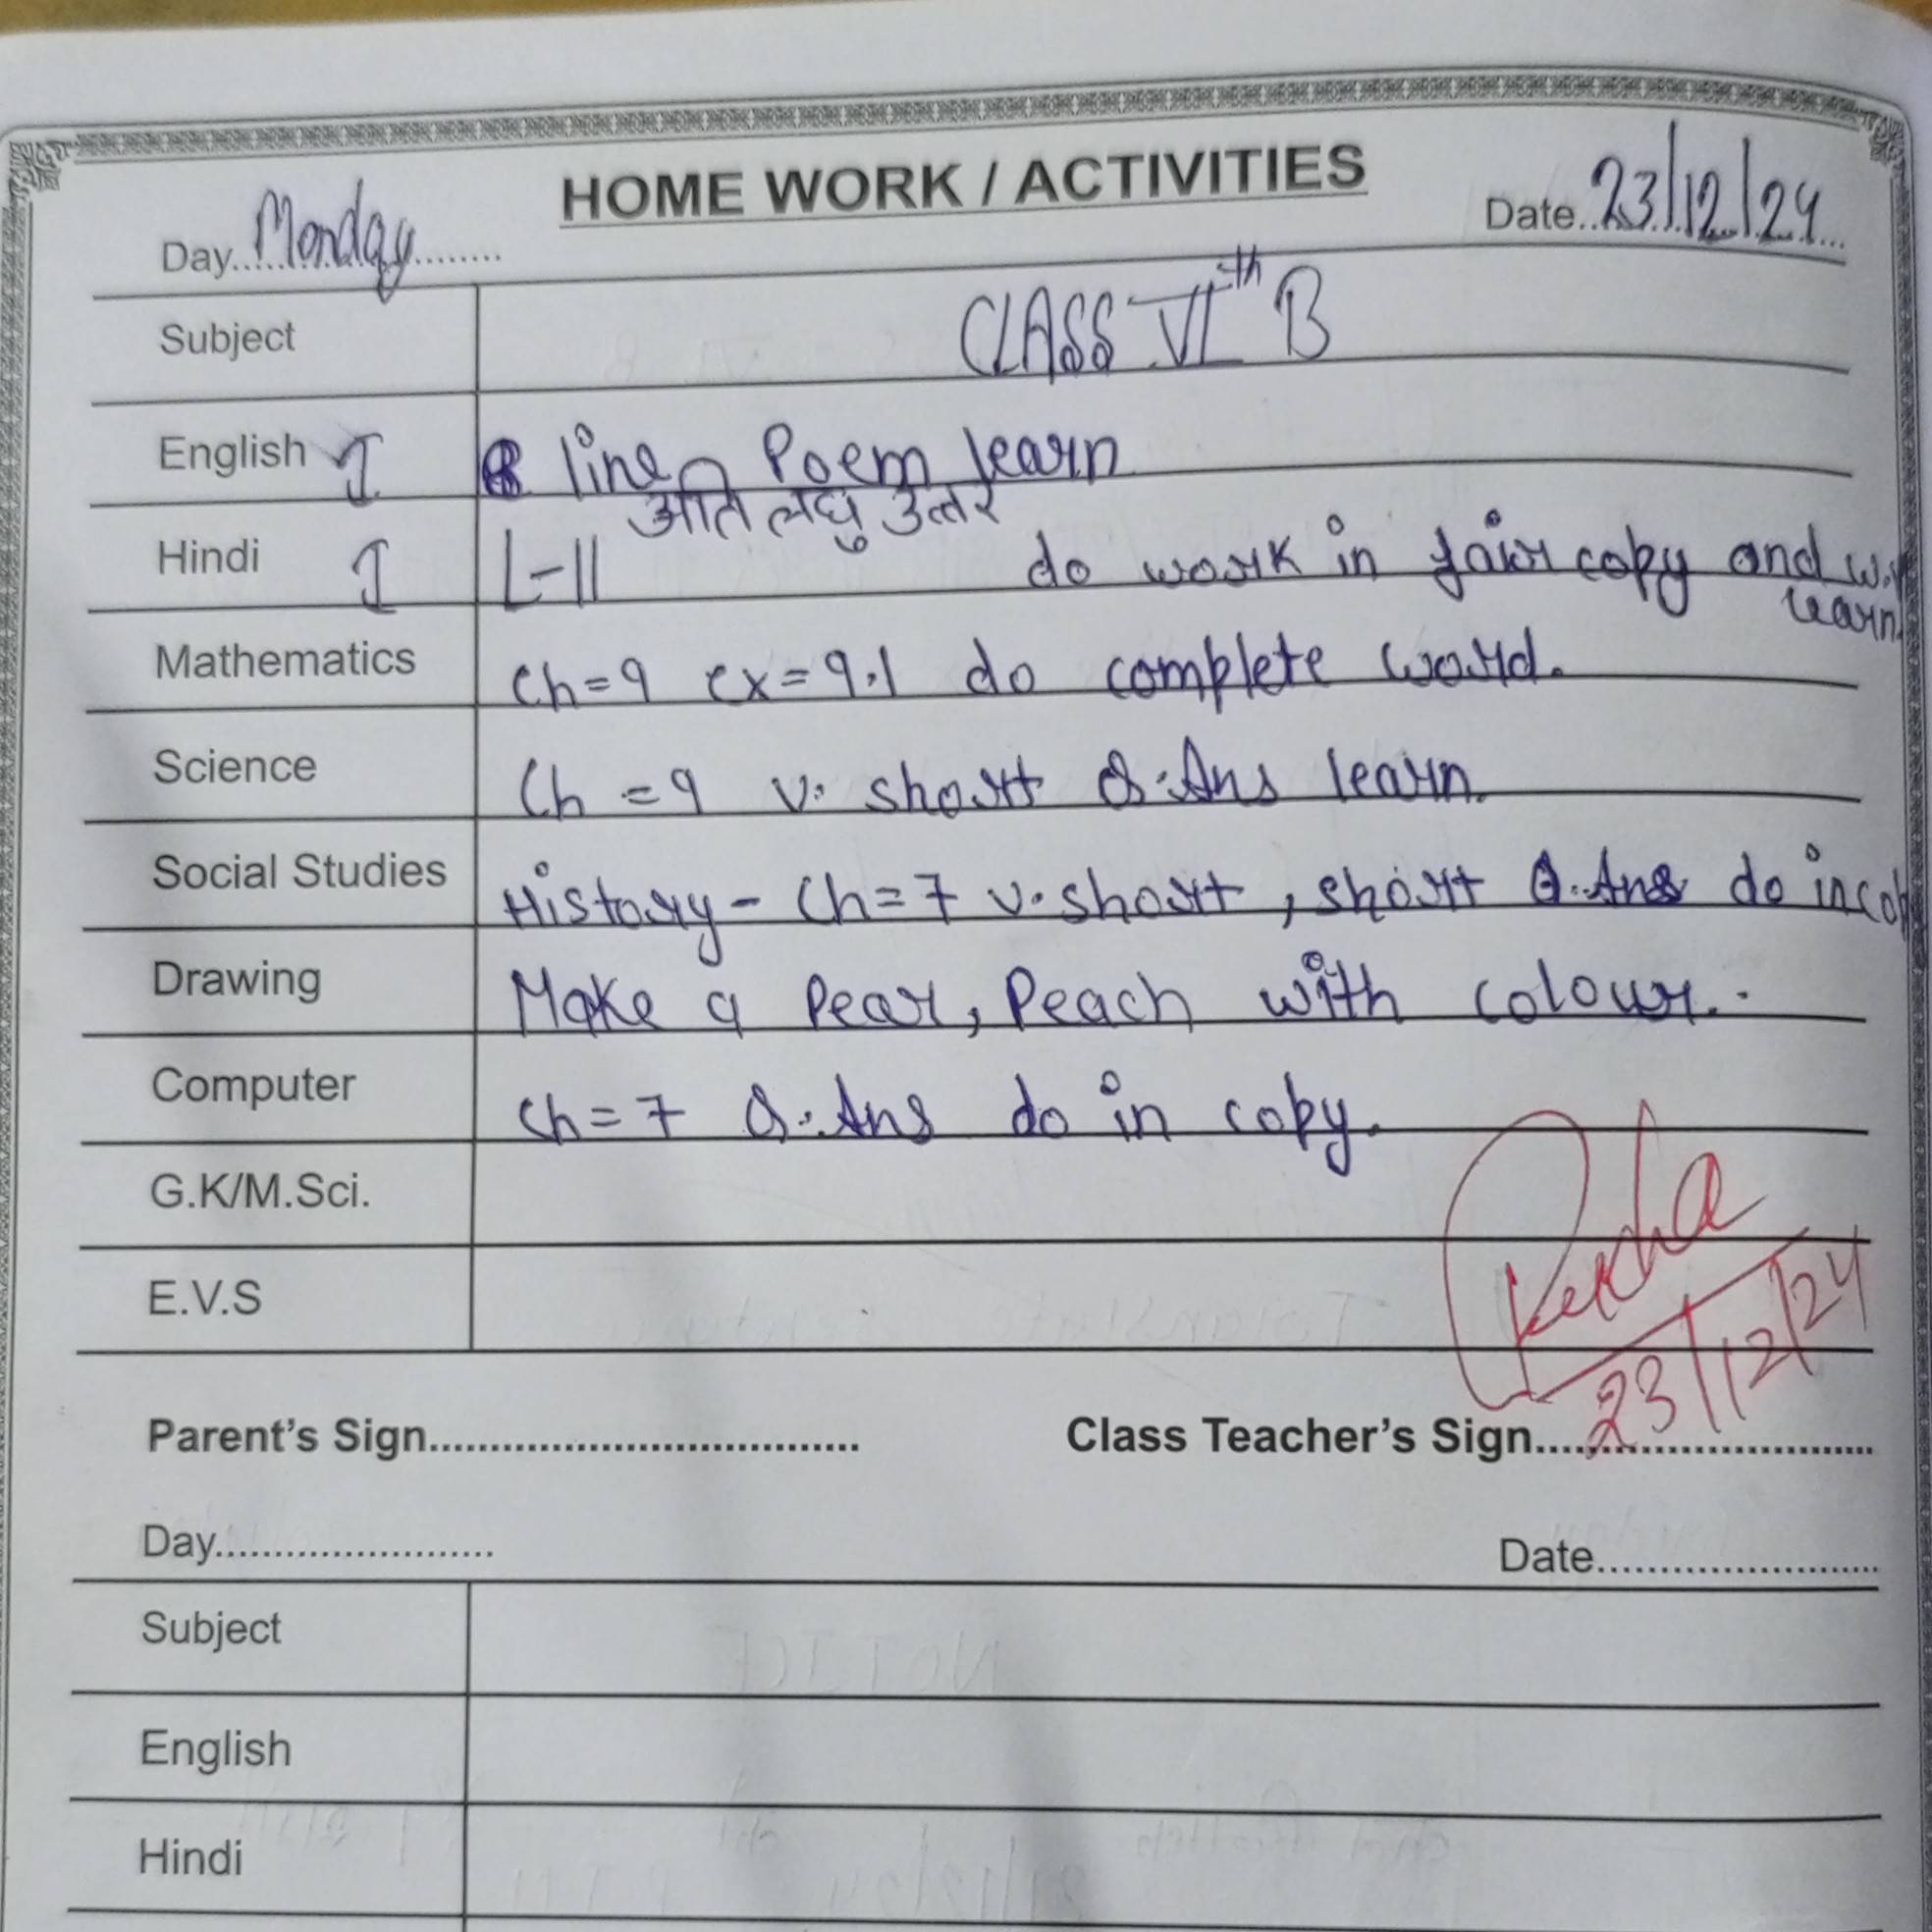 HOME WORK / ACTIVITIES
Day..Monday........ Date..23/12/24...
Subject CLASS VIth B
English I 8 line Poem learn
अति लघु उत्तर
Hindi I L-11 do work in fair copy and
learn
Mathematics Ch=9 ex=9.1 do complete word.
Science Ch=9 v. short Q.Ans learn.
Social Studies History - Ch=7 v.short, short Q.Ans do in
Drawing Make a Pear, Peach with colour.
Computer Ch=7 Q.Ans do in copy.
G.K/M.Sci.
E.V.S
23/12/24
Parent's Sign.................................. Class Teacher's Sign............................
Day....................... Date.......................
Subject
English
Hindi